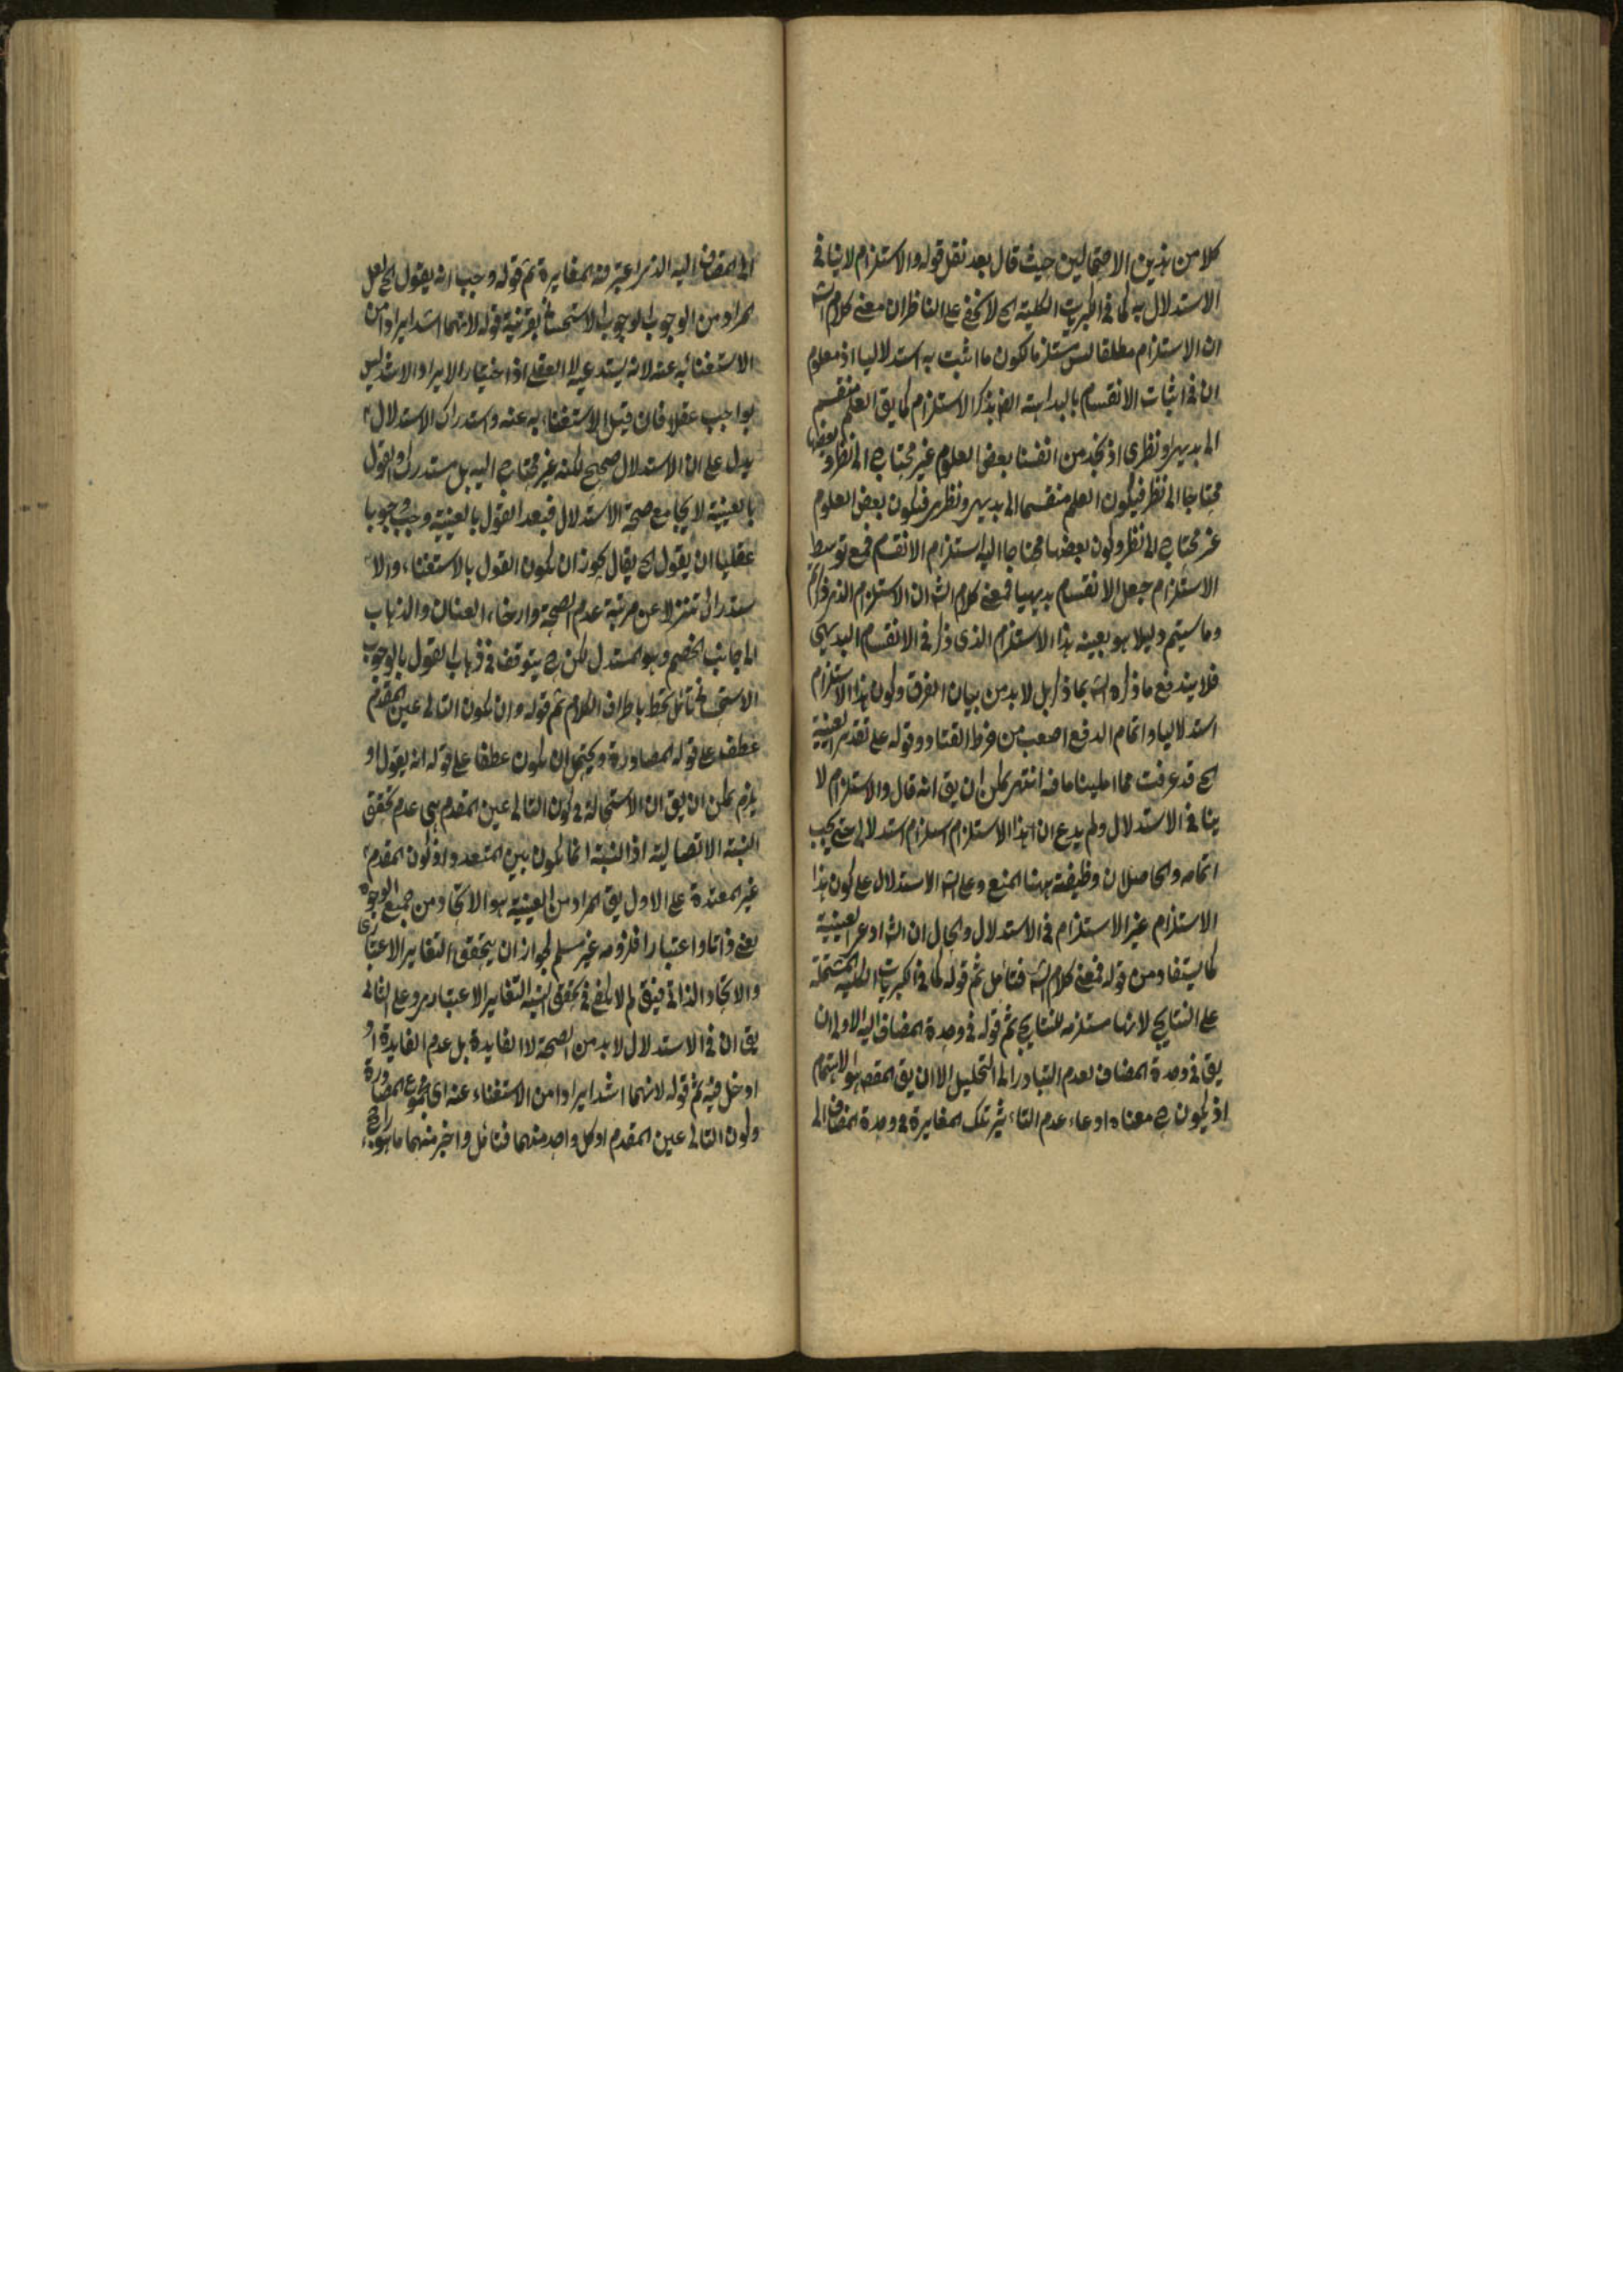 كلا من هذين الاحتمالين حيث قال بعد نقل قوله والاستلزام لا ينافى
الاستدلال به كما فى الكبريات الكلية الخ لا يخفى على الناظر ان معنى كلام الشه
ان الاستلزام مطلقا ليس مستلزما لكون ما اثبت به استدلاليا اذ معلوم
ان فى اثبات الانقسام بالبداهة ايضا يذكر الاستلزام كما يق العلم منقسم
الى بديهى ونظرى اذ نجد من انفسنا بعض العلوم غير محتاج الى نظر وبعضها
محتاجا الى نظر فيكون العلم منقسما الى بديهى ونظرى فيكون بعض العلوم
غير محتاج الى نظر وكون بعضها محتاجا اليه استلزام الانقسام فمع توسط
الاستلزام جعل الانقسام بديهيا فمعنى كلام الشه ان الاستلزام الذى
وما سيتم دليلا هو بعينه هذا الاستلزام الذى ذكر فى الانقسام البديهى
فلا يندفع ما ذكره الشه بما ذكر بل لا بد من بيان الفرق وكون هذا الاستلزام
استدلاليا واتمام الدفع اصعب من خرط القتاد وقوله على تقدير العينية
الخ قد عرفت مما املينا ما فيه انتهى يمكن ان يق انه قال والاستلزام لا
ينافى الاستدلال ولم يدع ان هذا الاستلزام استلزام استدلالى حتى يجب
اتمامه والحاصل ان وظيفته ههنا المنع وعلى الشه الاستدلال على كون هذا
الاستلزام غير الاستلزام فى الاستدلال والحال ان الشه ادعى العينية
كما يستفاد من قوله فمعنى كلام الشه فتأمل ثم قوله كما فى الكبريات الكلية المشتملة
على النتايج لانها مستلزمه للنتايج ثم قوله فى وحدة المضاف اليه الاولى ان
يق فى وحدة المضاف لعدم التبادر الى التحليل الا ان يق المقصد هو الاهتمام
اذ يكون ح معناه ادعاء عدم التأثير تلك المغايرة فى وحدة المضاف الى
الى المضاف اليه الذى اعتبر فيه المغايرة ثم قوله وجب انه يقول الخ لعل
المراد من الوجوب الوجوب الاستحسانى بقرينة قوله لانهما اشد ايرادا من
الاستغناء به عنه لانه يستدعيه لا العقلى اذ اختيار الايراد الاشد ليس
بواجب عقلا فان قيل الاستغناء به عنه واستدراك الاستدلال
يدل على ان الاستدلال صحيح لكنه غير محتاج اليه بل مستدرك والقول
بالعينية لا يجامع صحة الاستدلال فبعد القول بالعينية وجب وجوبا
عقليا ان يقول الخ يقال يجوز ان يكون القول بالاستغناء والا
ستدراك تنزلا عن مرتبة عدم الصحة وارخاء العنان والذهاب
الى جانب الخصم وهو المستدل لكن ح يتوقف فى ذهاب القول بالوجوب
الاستحسانى تأمل تحط باطراف الكلام ثم قوله وان يكون التالى عين المقدم
عطف على قوله المصادرة ويحتمل ان يكون عطفا على قوله انه يقول او
يلزم يمكن ان يق ان الاستحالة فى كون التالى عين المقدم هى عدم تحقق
النسبة الاتصالية اذ النسبة انما يكون بين المتعدد او كون المقدم
غير المعتدة على الاول يق المراد من العينية هو الاتحاد من جميع الوجوه
يعنى ذاتا واعتبارا فلزومه غير مسلم لجواز ان يتحقق التغاير الاعتبارى
والاتحاد الذاتى فيق لم لا يكفى فى تحقق النسبة التغاير الاعتبارى وعلى الثانى
يق ان فى الاستدلال لا بد من الصحة لا الفايدة بل عدم الفايدة او
ادخل فيه ثم قوله لانهما اشد ايرادا من الاستغناء عنه اى مجموع المصادرة
وكون التالى عين المقدم او كل واحد منهما فتأمل واختر منهما ما هو راجح